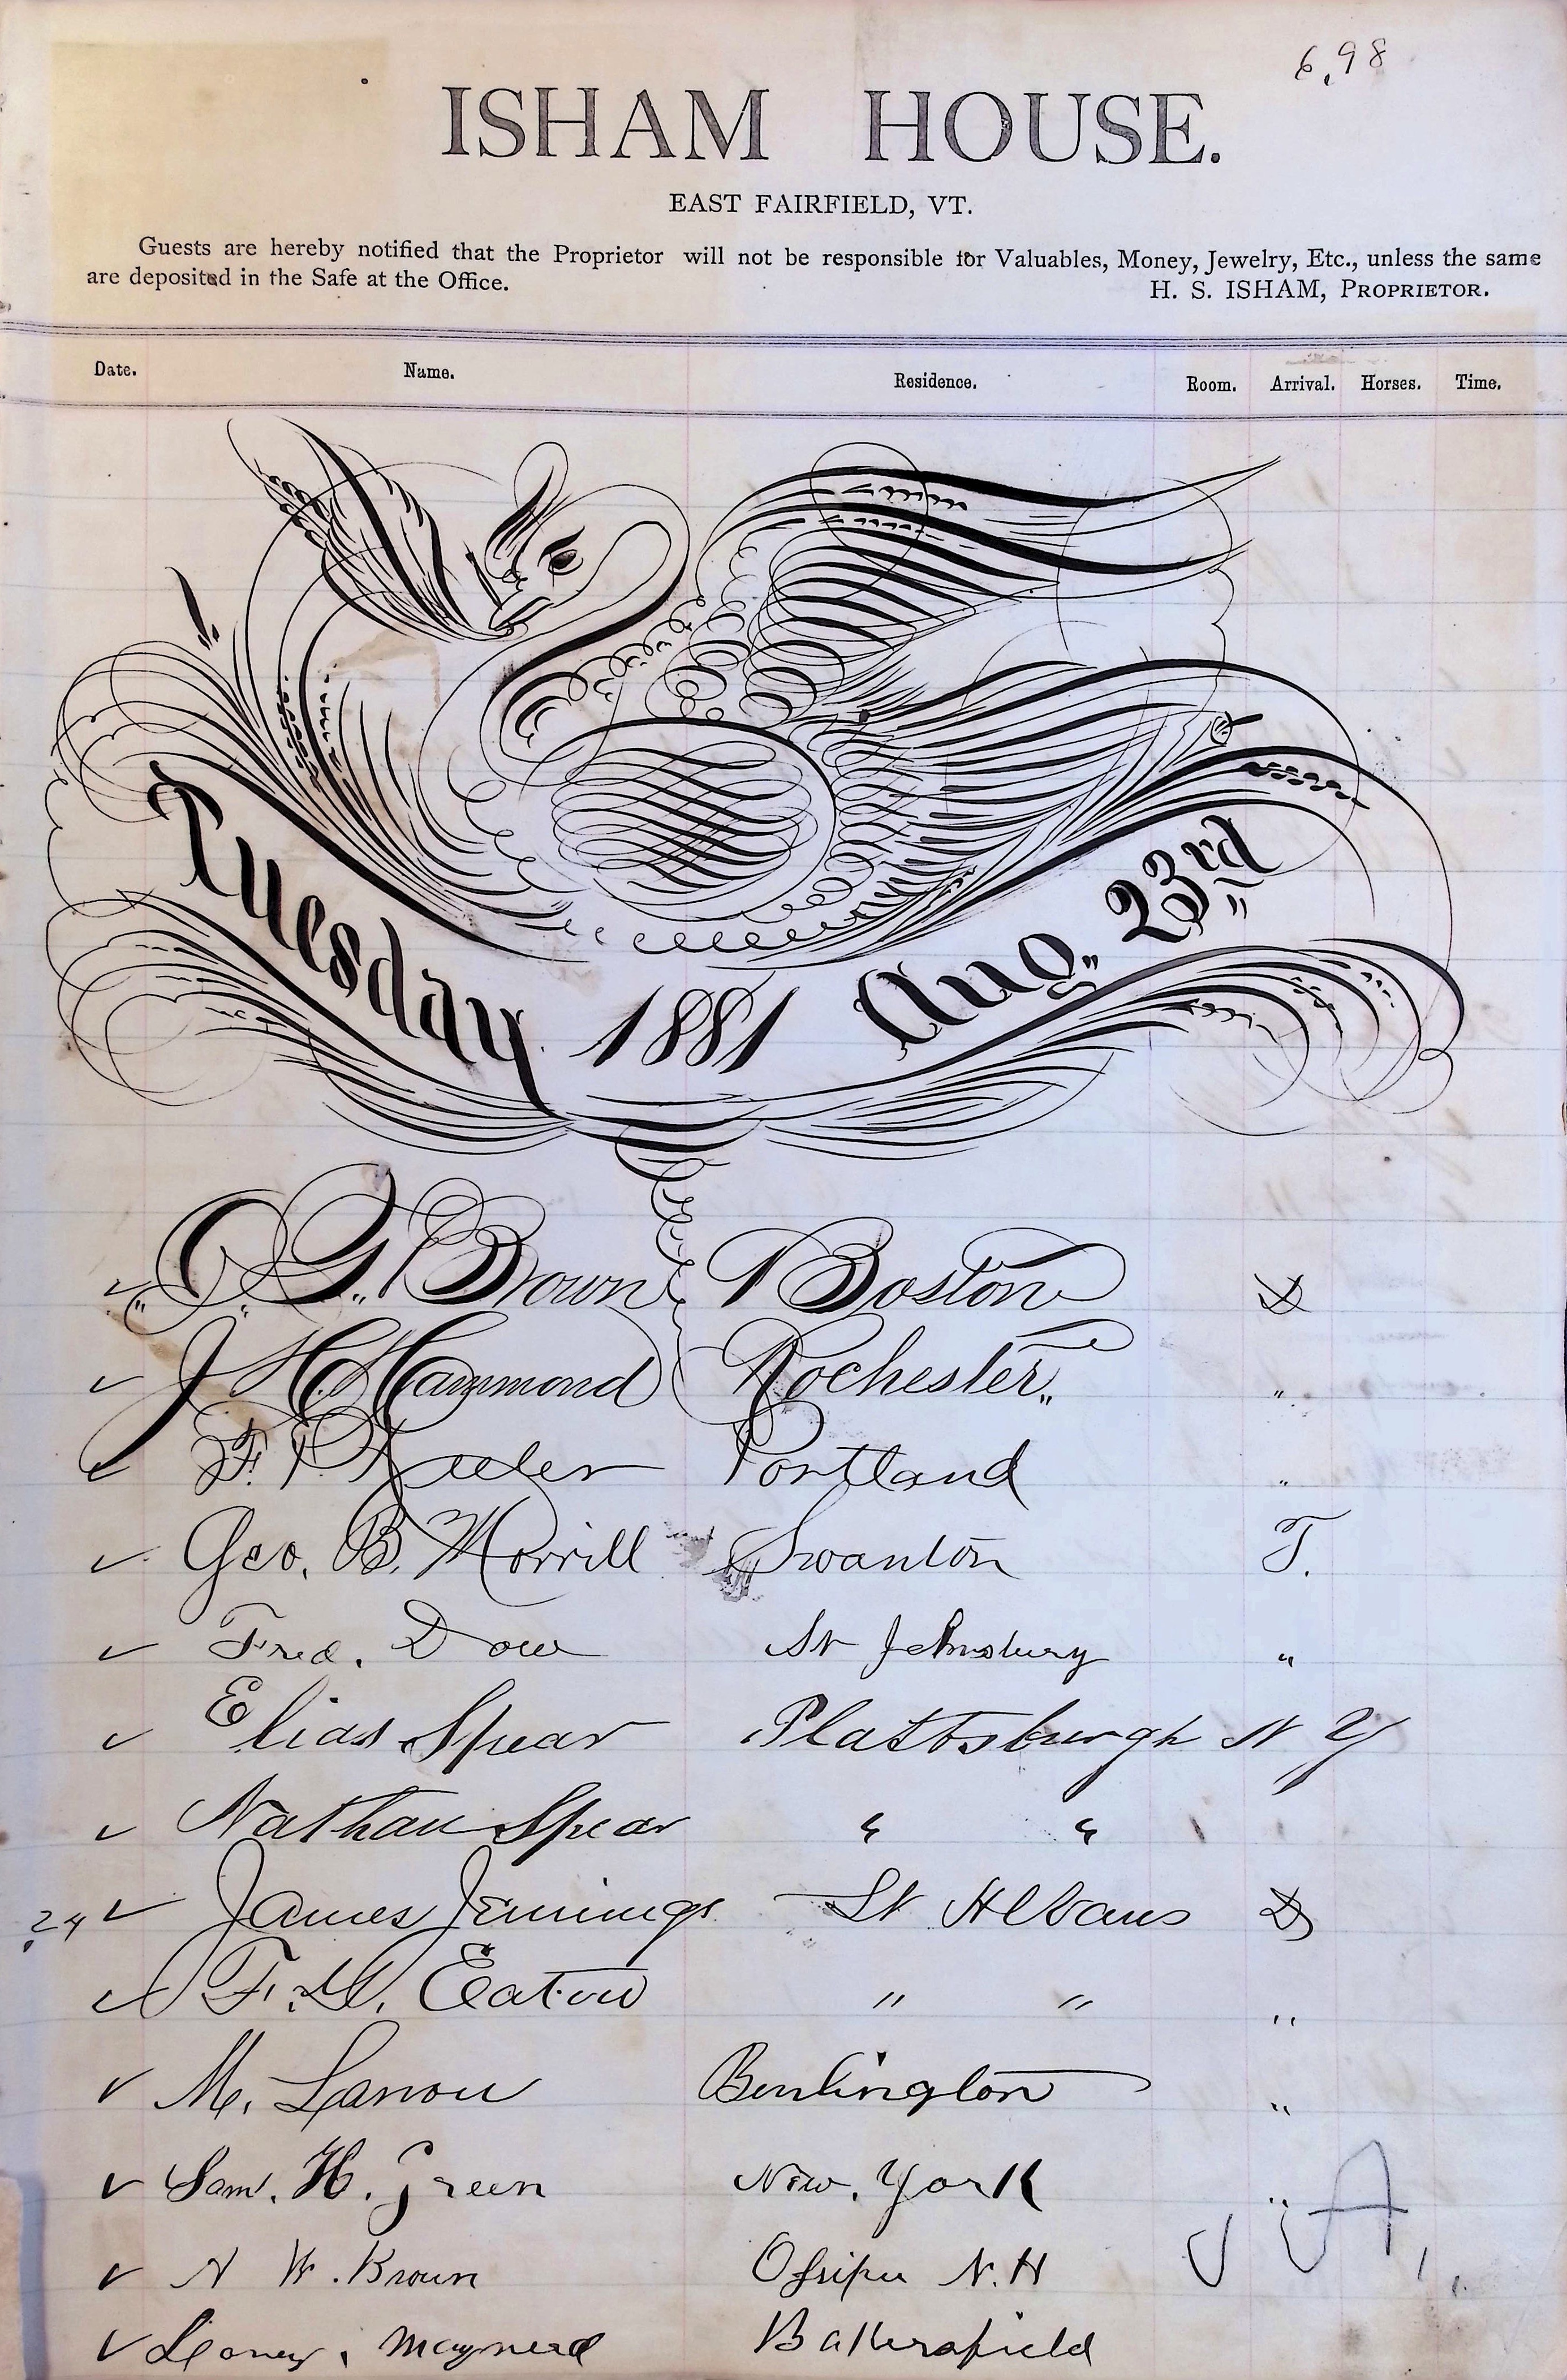 6,98
ISHAM HOUSE.
EAST FAIRFIELD, VT.
Guests are hereby notified that the Proprietor will not be responsible for Valuables, Money, Jewelry, Etc., unless the same
are deposited in the Safe at the Office.
H. S. ISHAM, PROPRIETOR.
Date. Name. Residence. Room. Arrival. Horses. Time.
Tuesday 1881 Aug. 23rd
O. G. Brown Boston
J H. Hammond Rochester "
F. P. Keeler Portland "
Geo. B. Morrill Swanton T.
Fred. Dow St Johnsbury "
Elias Spear Plattsburgh N Y
Nathan Spear " "
24 James Jennings St Albans
F. G. Eaton " " "
M. Lanou Burlington "
Sam. H. Green New. York "
N W. Brown Ossipee N.H
Maynerd Bakersfield